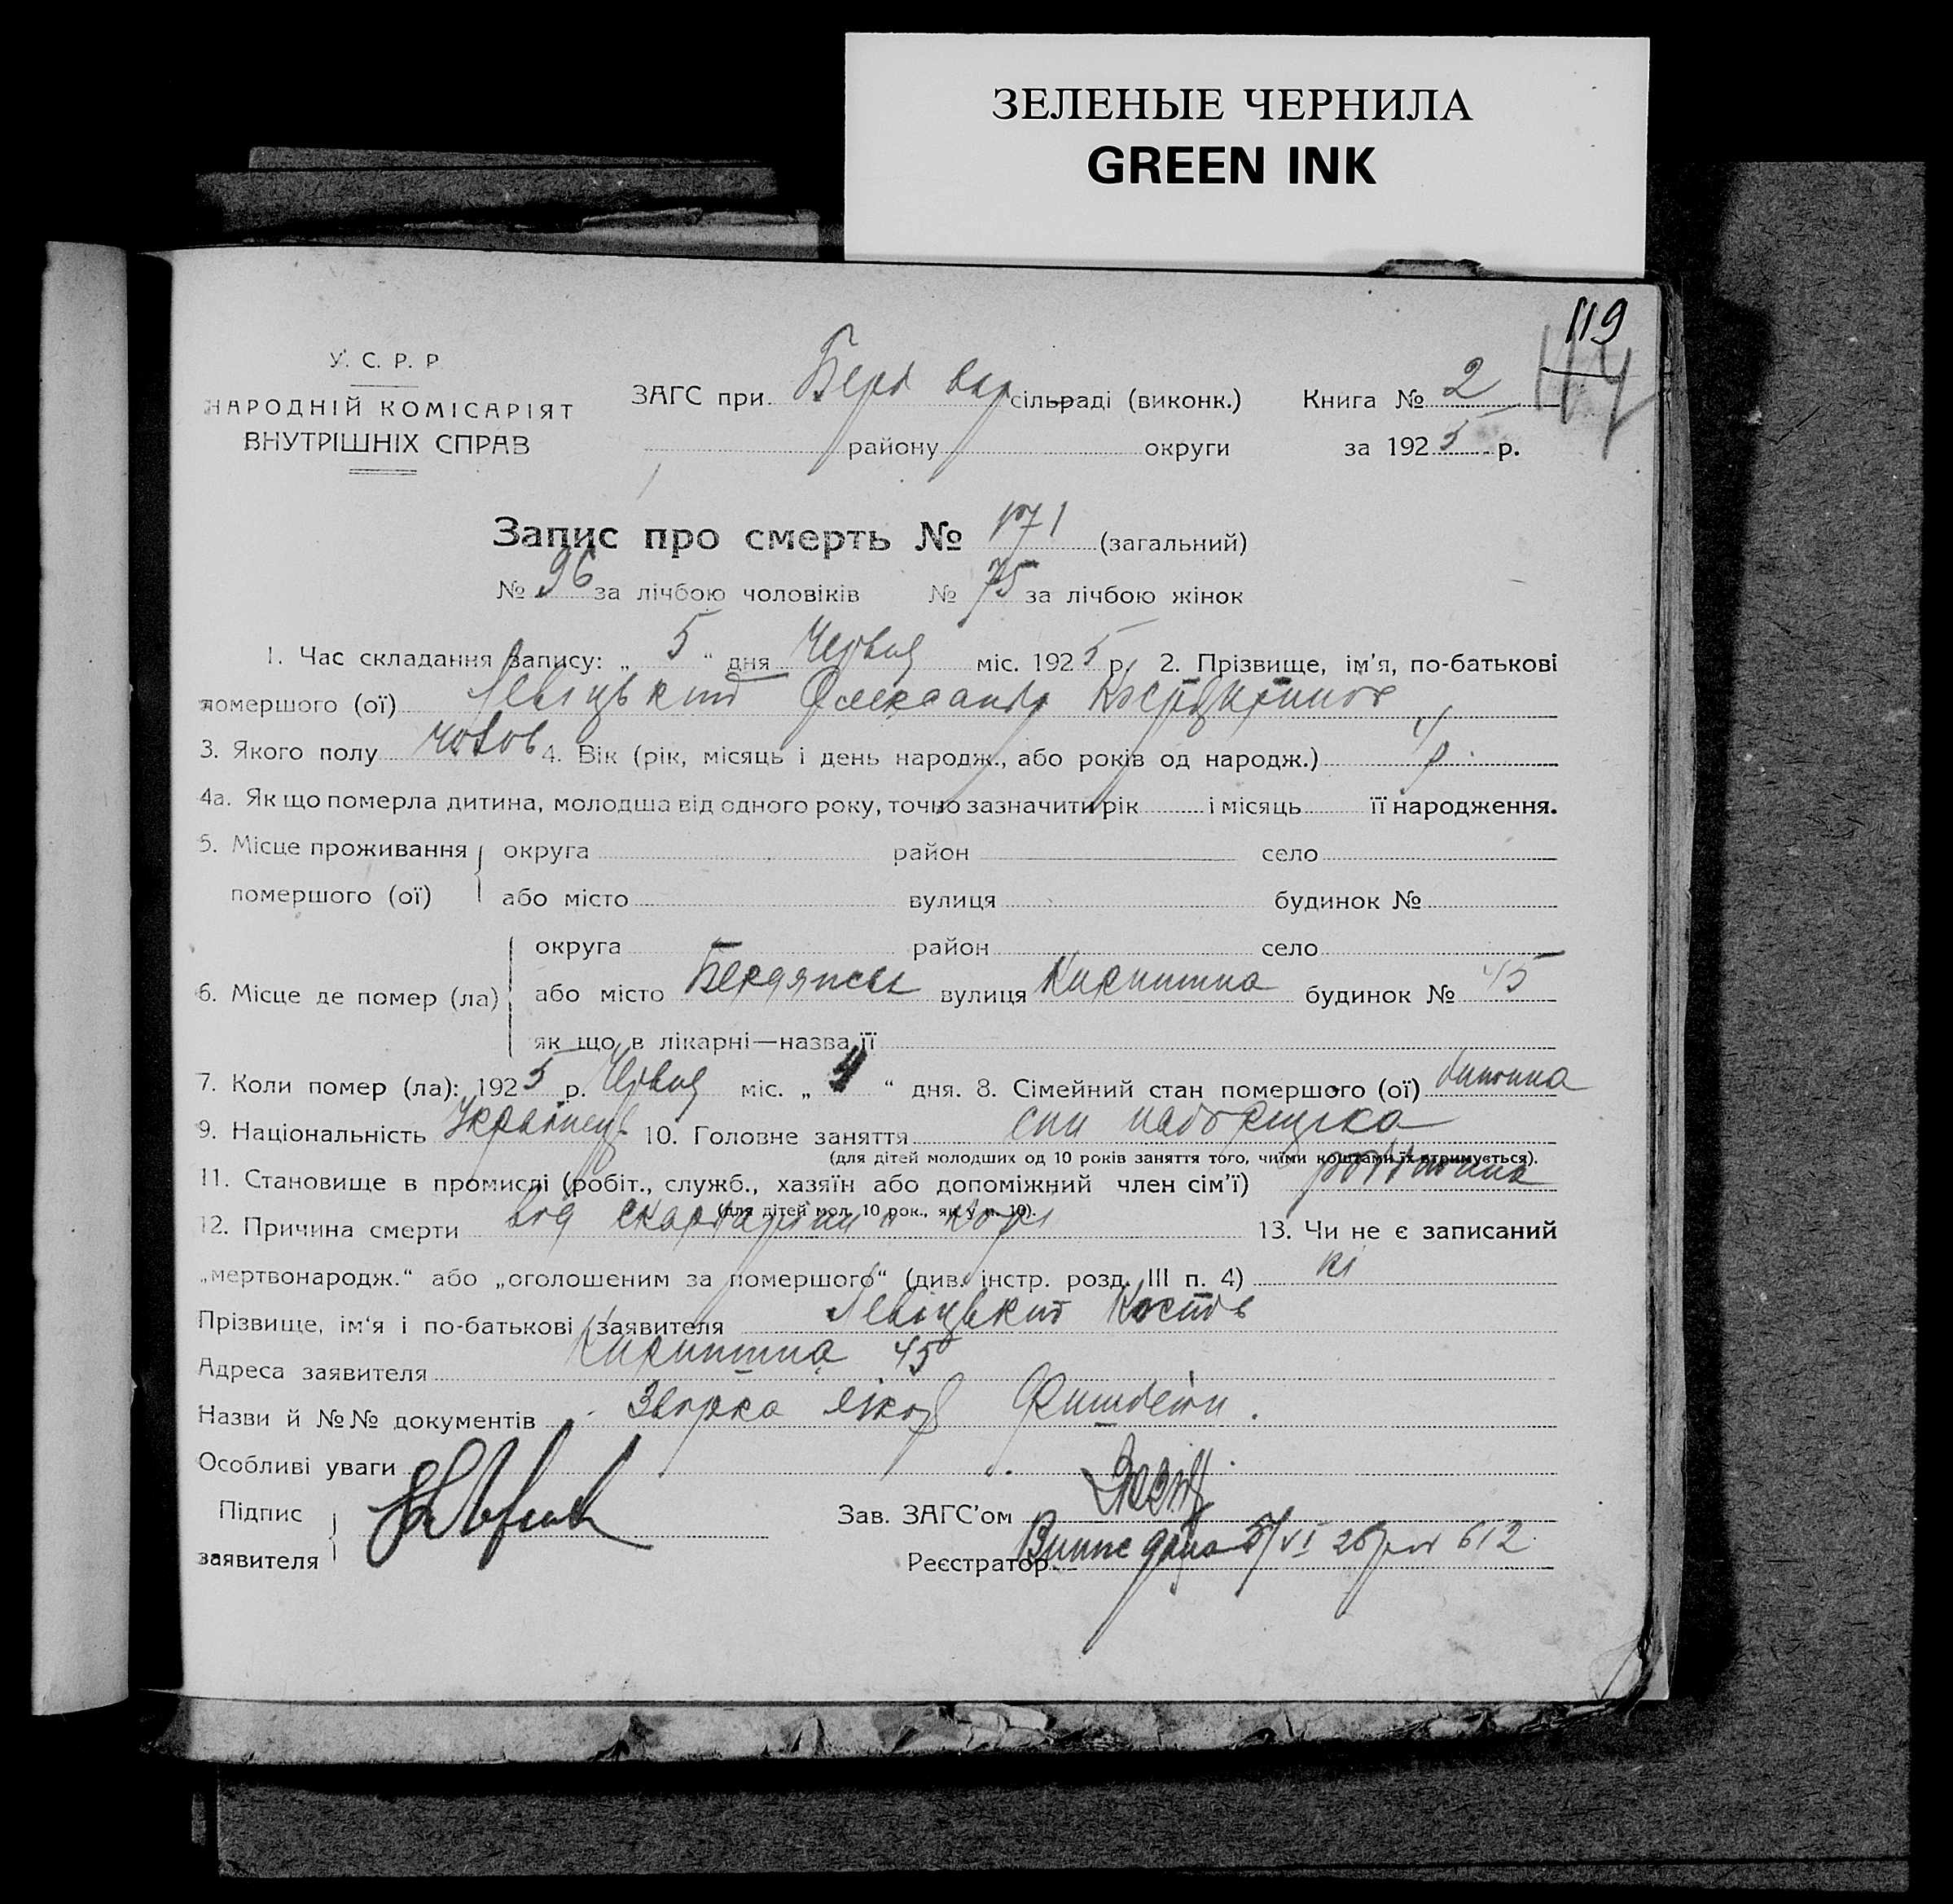 ЗЕЛЕНЫЕ ЧЕРНИЛА
GREEN INK
119
У. С. Р. Р
НАРОДНІЙ КОМІСАРІЯТ
ВНУТРІШНІХ СПРАВ
ЗАГС при Берд сільраді (виконк.)
району округи
Книга № 2
за 1925 р.
Запис про смерть № 171 (загальний)
№ 96 за лічбою чоловіків № 75 за лічбою жінок
1. Час складання запису: „ 5 “ дня Червня міс. 1925 р. 2. Прізвище, ім'я, по-батькові
помершого (ої) Левіцький Олександр
3. Якого полу чолов 4. Вік (рік, місяць і день народж., або років од народж.) 4 р.
4а. Як що померла дитина, молодша від одного року, точно зазначити рік і місяць її народження.
5. Місце проживання округа район село
помершого (ої) або місто вулиця будинок №
округа район село
6. Місце де помер (ла) або місто Бердянськ вулиця будинок № 45
як що в лікарні—назва її
7. Коли помер (ла): 1925 р. Червня міс. „ 4 “ дня. 8. Сімейний стан помершого (ої) дитина
9. Національність Українец 10. Головне заняття син
(для дітей молодших од 10 років заняття того, чиїми коштами їх втримується).
11. Становище в промислі (робіт., служб., хазяїн або допоміжний член сім'ї)
(для дітей мол. 10 рок., як у п. 10).
12. Причина смерти від скарлатини и корі 13. Чи не є записаний
„мертвонародж.“ або „оголошеним за помершого“ (див. інстр. розд. III п. 4) ні
Прізвище, ім'я і по-батькові заявителя Левіцький Костя
Адреса заявителя 45
Назви й №№ документів лікаря
Особливі уваги
Підпис
заявителя
Зав. ЗАГС'ом
Реєстратор
612